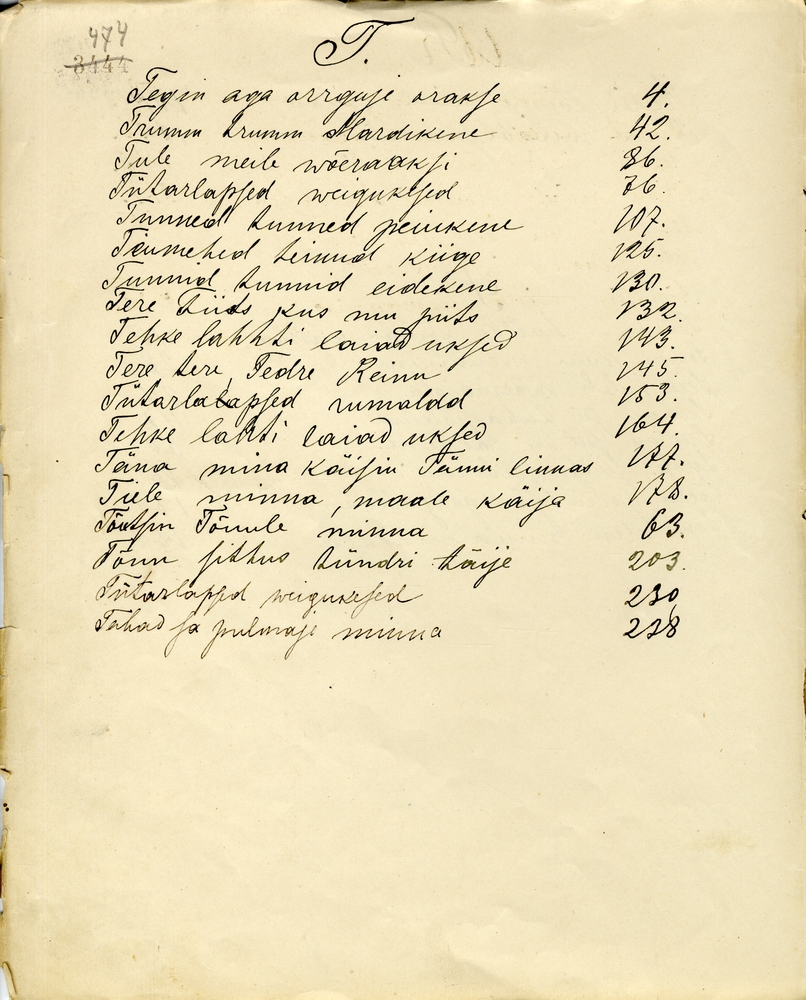 474
3444
T.
Tegin aga orrguje orakse 4.
Trumm trumm Mardikene 42.
Tule meile wõeraaksi 86.
Tütarlapsed weigukesed 76.
Tunned tunned peiukene 107.
Taumehed teinud kiige 125.
Tunnid tunnid eidekene 130.
Tere tiids kus mu piits 132.
Tehke lahhti laiad uksed 143.
Tere tere, Tedre Reinu 145.
Tütarlalapsed rumaldd 153.
Tehke lahti laiad uksed 164.
Täna mina käisin Tänni linnas 177.
Tiele minna, maale käija 178.
Tõutsin Tõnule minna 63.
Tõnn sittus tündri täije 203.
Tütarlapsed weigukesed 230
Tahad sa pulmaje minna 238